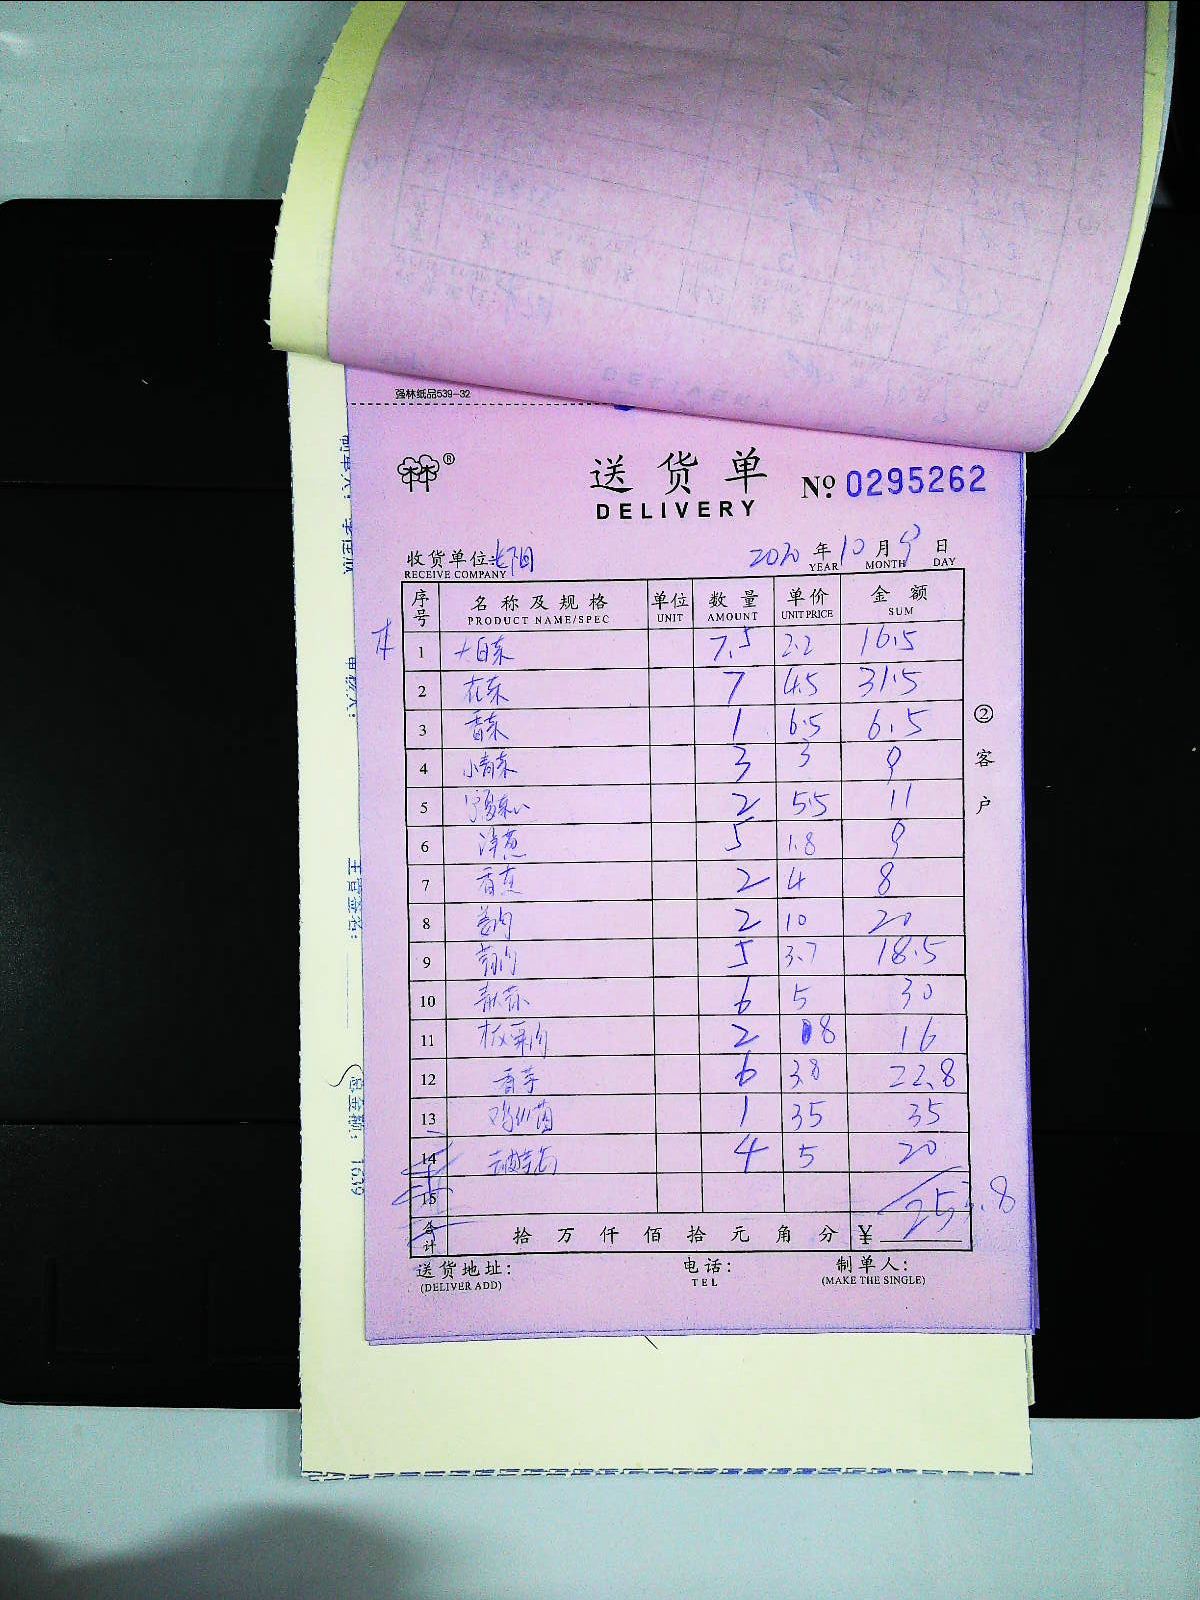 强林纸品539-32
®
送货单
No. 0295262
DELIVERY
收货单位: 2020 年 10 月 9 日
RECEIVE COMPANY YEAR MONTH DAY
序号 名称及规格 单位 数量 单价 金额
PRODUCT NAME/SPEC UNIT AMOUNT UNIT PRICE SUM
1 大白菜 7.5 2.2 16.5
2 花菜 7 4.5 31.5
3 香菜 1 6.5 6.5
4 小青菜 3 3 9
5 宁夏菜心 2 5.5 11
6 洋葱 5 1.8 9
7 香葱 2 4 8
8 姜肉 2 10 20
9 5 3.7 18.5
10 6 5 30
11 2 8 16
12 香芋 6 3.8 22.8
13 1 35 35
14 4 5 20
15
合计 拾 万 仟 佰 拾 元 角 分 ¥ 253.8
送货地址: 电话: 制单人:
(DELIVER ADD) TEL (MAKE THE SINGLE)
②客户
主管签名:
总金额: 1639